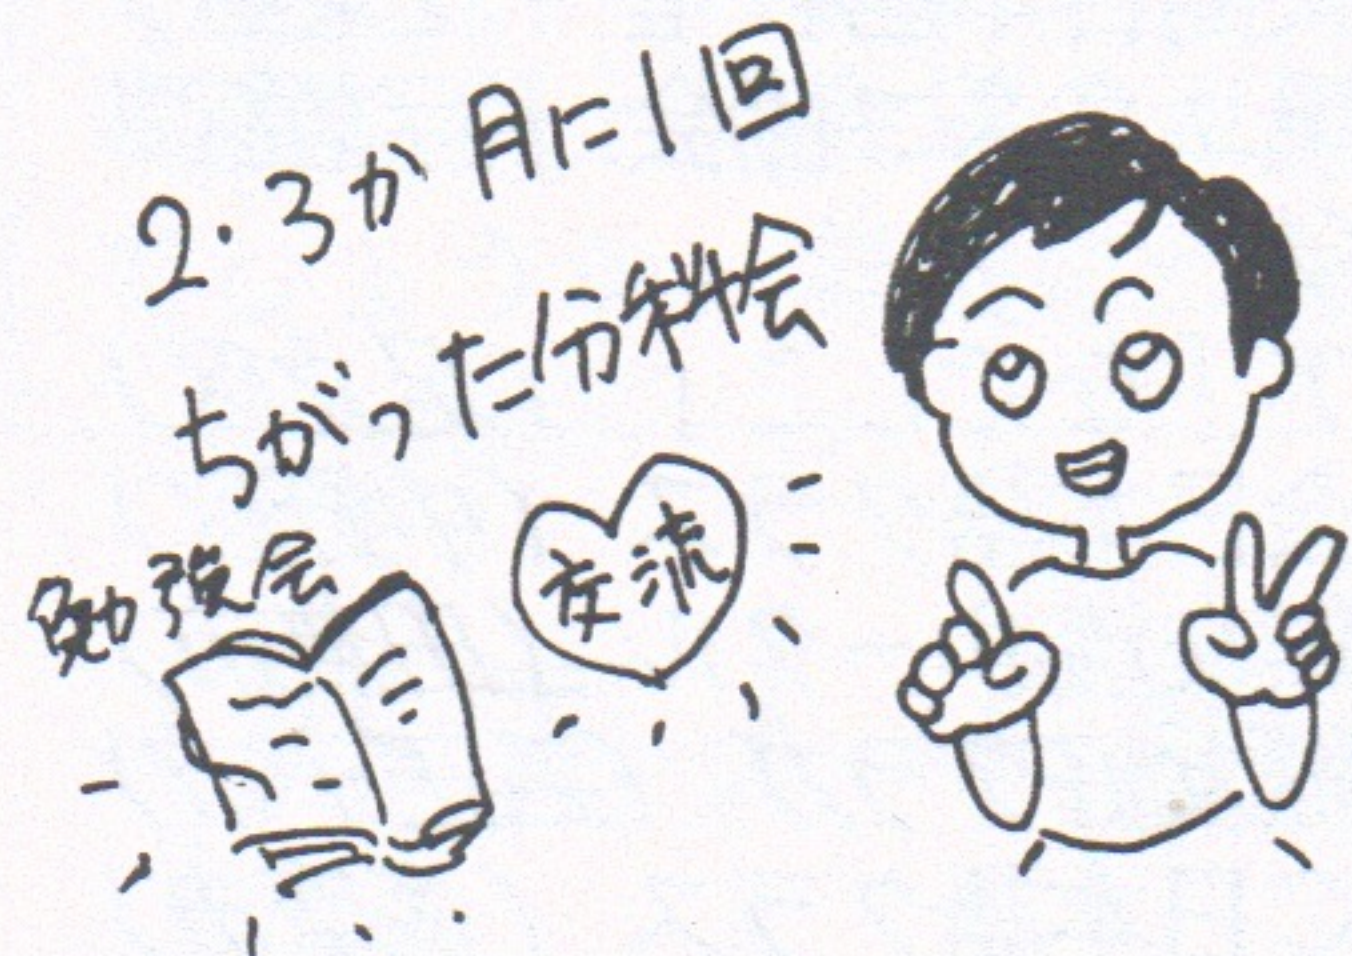 2・3か月に1回
ちがった分科会
勉強会
交流